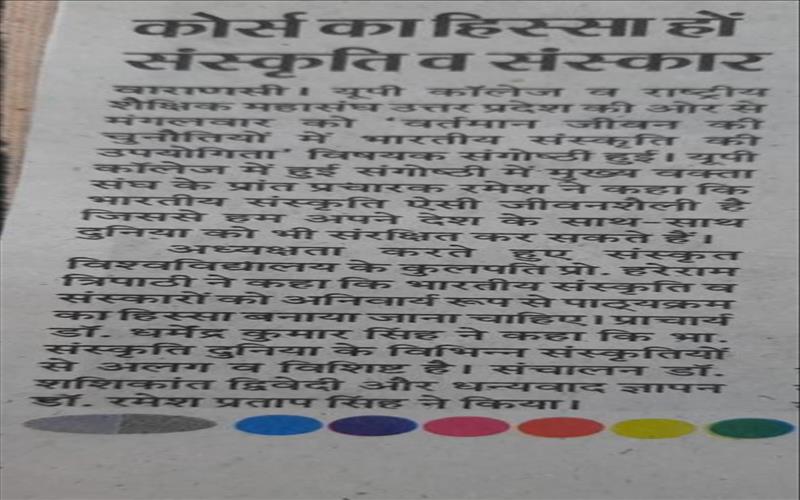 कोर्स का हिस्सा हों
संस्कृति व संस्कार
वाराणसी। यूपी कॉलेज व राष्ट्रीय
शैक्षिक महासंघ उत्तर प्रदेश की ओर से
मंगलवार को 'वर्तमान जीवन की
चुनौतियों में भारतीय संस्कृति की
उपयोगिता' विषयक संगोष्ठी हुई। यूपी
कॉलेज में हुई संगोष्ठी में मुख्य वक्ता
संघ के प्रांत प्रचारक रमेश ने कहा कि
भारतीय संस्कृति ऐसी जीवनशैली है
जिससे हम अपने देश के साथ-साथ
दुनिया को भी संरक्षित कर सकते हैं।
अध्यक्षता करते हुए संस्कृत
विश्वविद्यालय के कुलपति प्रो. हरेराम
त्रिपाठी ने कहा कि भारतीय संस्कृति व
संस्कारों को अनिवार्य रूप से पाठ्यक्रम
का हिस्सा बनाया जाना चाहिए। प्राचार्य
डॉ. धर्मेंद्र कुमार सिंह ने कहा कि भा.
संस्कृति दुनिया के विभिन्न संस्कृतियों
से अलग व विशिष्ट है। संचालन डॉ.
शशिकांत द्विवेदी और धन्यवाद ज्ञापन
डॉ. रमेश प्रताप सिंह ने किया।